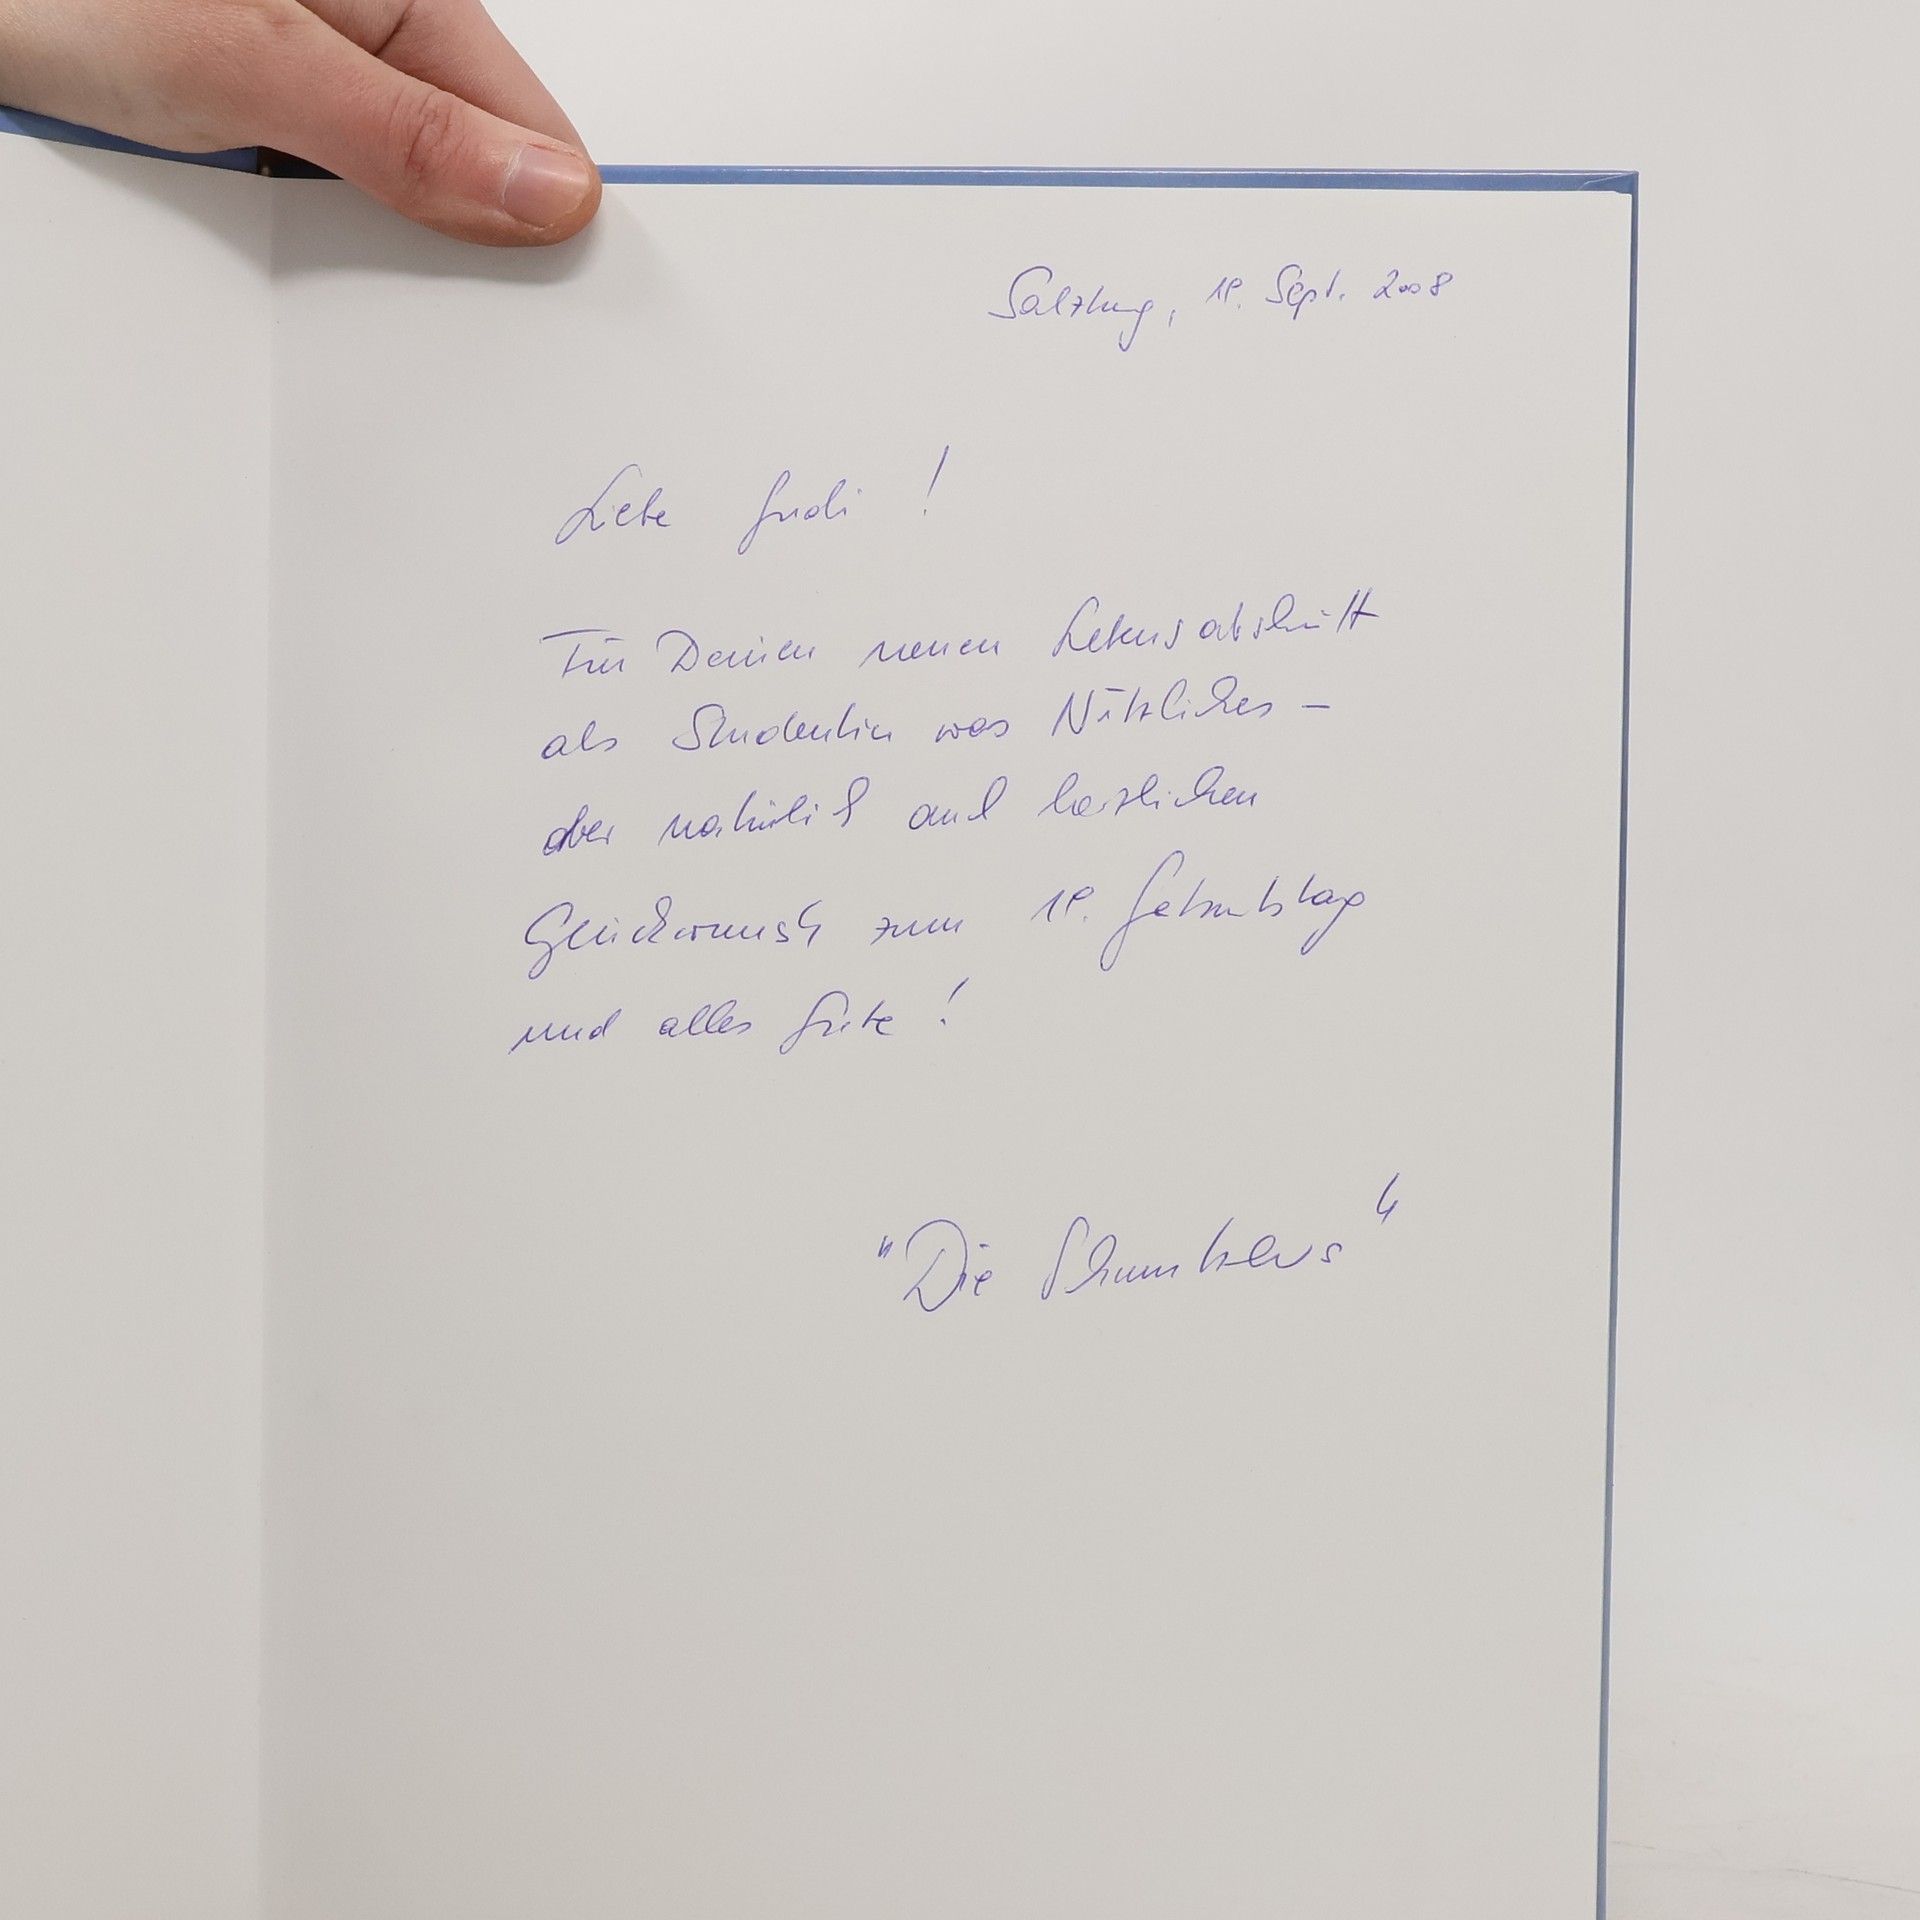 Salzburg, 18. Sept. 2008
Liebe Gudi!
Für Deinen neuen Lebensabschnitt
als Studentin was Nützliches –
aber natürlich auch herzlichen
Glückwunsch zum 18. Geburtstag
und alles Gute!
"Die